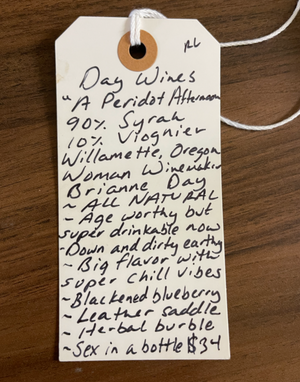 RL
Day Wines
"A Peridot Afternoon
90% Syrah
10% Viognier
Willamette, Oregon
Woman Winemaker
Brianne Day
~ ALL NATURAL
- Age worthy but
super drinkable now
~Down and dirty earthy
~ Big flavor with
super chill vibes
~Blackened blueberry
~ Leather saddle
~ Herbal burble
~Sex in a bottle $34